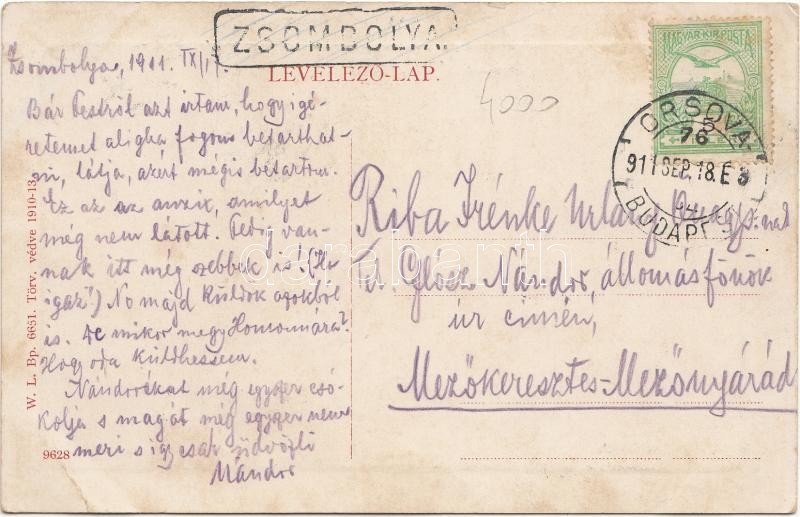 ZSOMBOLYA.
LEVELEZŐ-LAP.
MAGYAR KIR. POSTA
ORSOVA-
76
911 SEP. 18. E 8
BUDAPEST
4000
Zsombolya, 1911. IX/17.
Bár Pestről azt írtam, hogy igé-
retemet aligha fogom betarthat-
ni, látja, azért mégis betartom.
Ez az az anzix, amilyet
még nem látott. Pedig van-
nak itt még szebbek is! (Ha
igaz!) No majd küldök azokból
is. De mikor megy Homonnára?
Hogy oda küldhessem.
Nándorékat még egyszer csó-
kolja s magát még egyszer nem
meri s így csak üdvözli
Nándor
Riba Irénke Urlány
Glósz Nándor, állomásfőnök
úr címén,
Mezőkeresztes-Mezőnyárád
W. L. Bp. 6651. Törv. védve 1910-13.
9628
darabanth